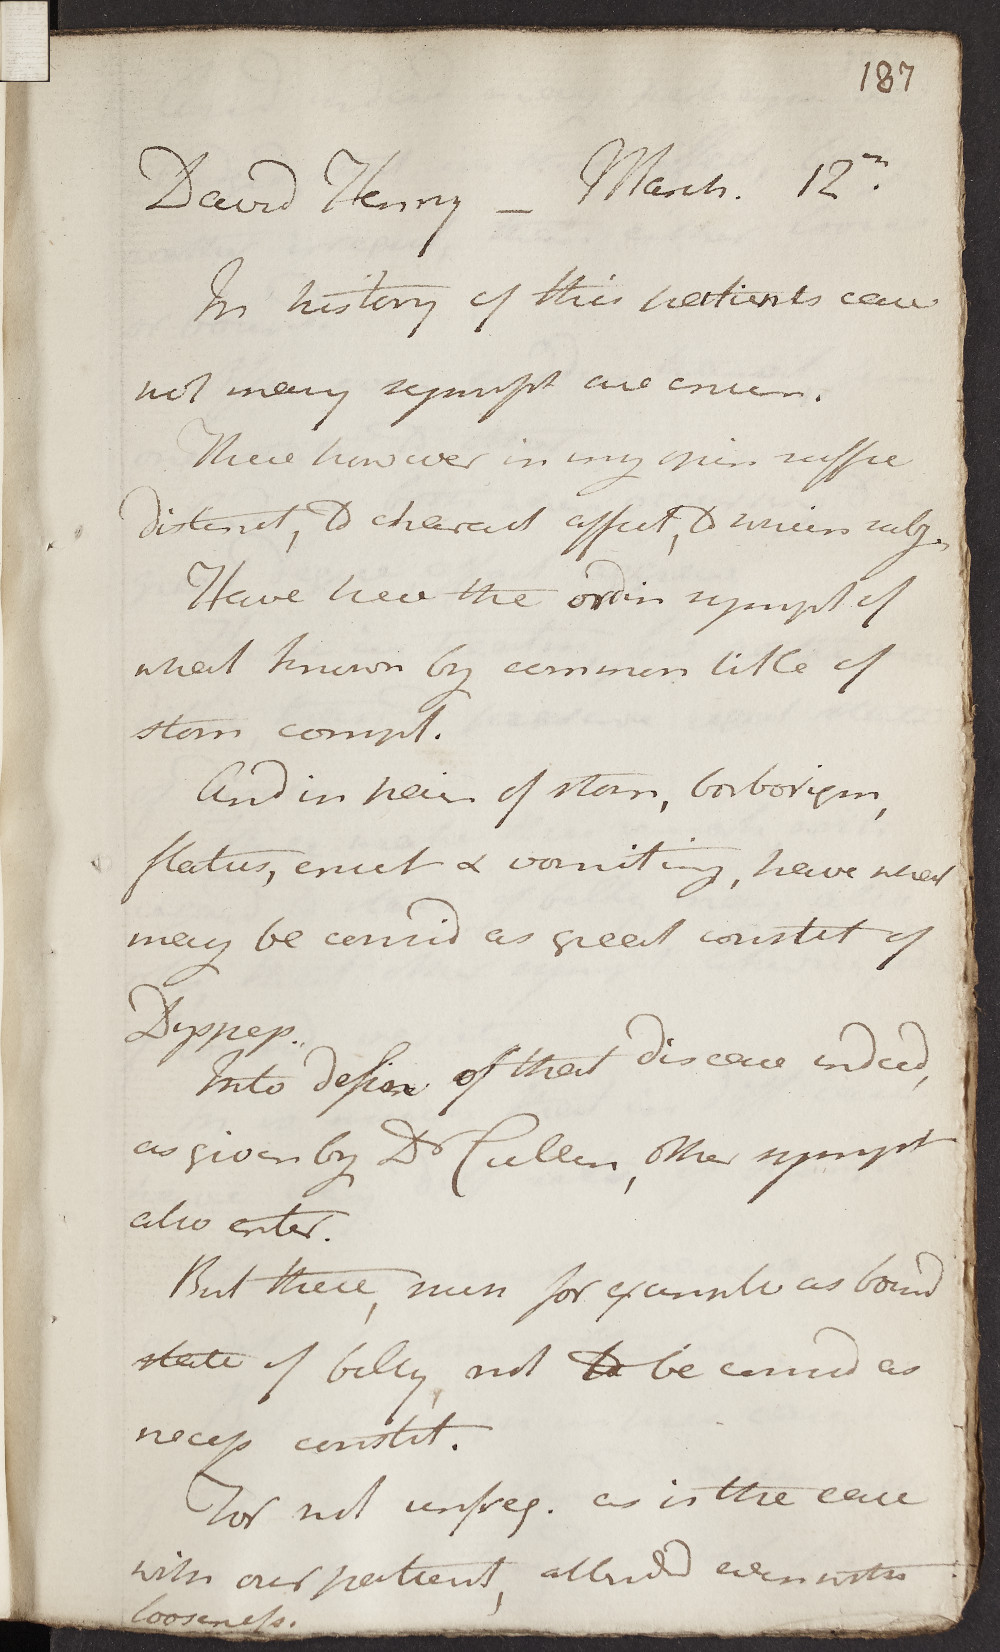 187
David Henry — March. 12th.
In history of this patients case
not many sympt are enum.
These however in my opin suffic
distinct, to charact affect, to which subj.
Have here the ordin sympt of
what known by common title of
stom compl.
And in pain of stom, borborigm,
flatus, eruct & vomiting, have what
may be consid as great constit of
Dyspep.
Into defin of that disease indeed,
as given by Dr Cullen, other sympt
also enter.
But these, such for example as bound
state of belly, not to be consid as
necess constit.
For not unfreq. as is the case
with our patient, attended even with
looseness.